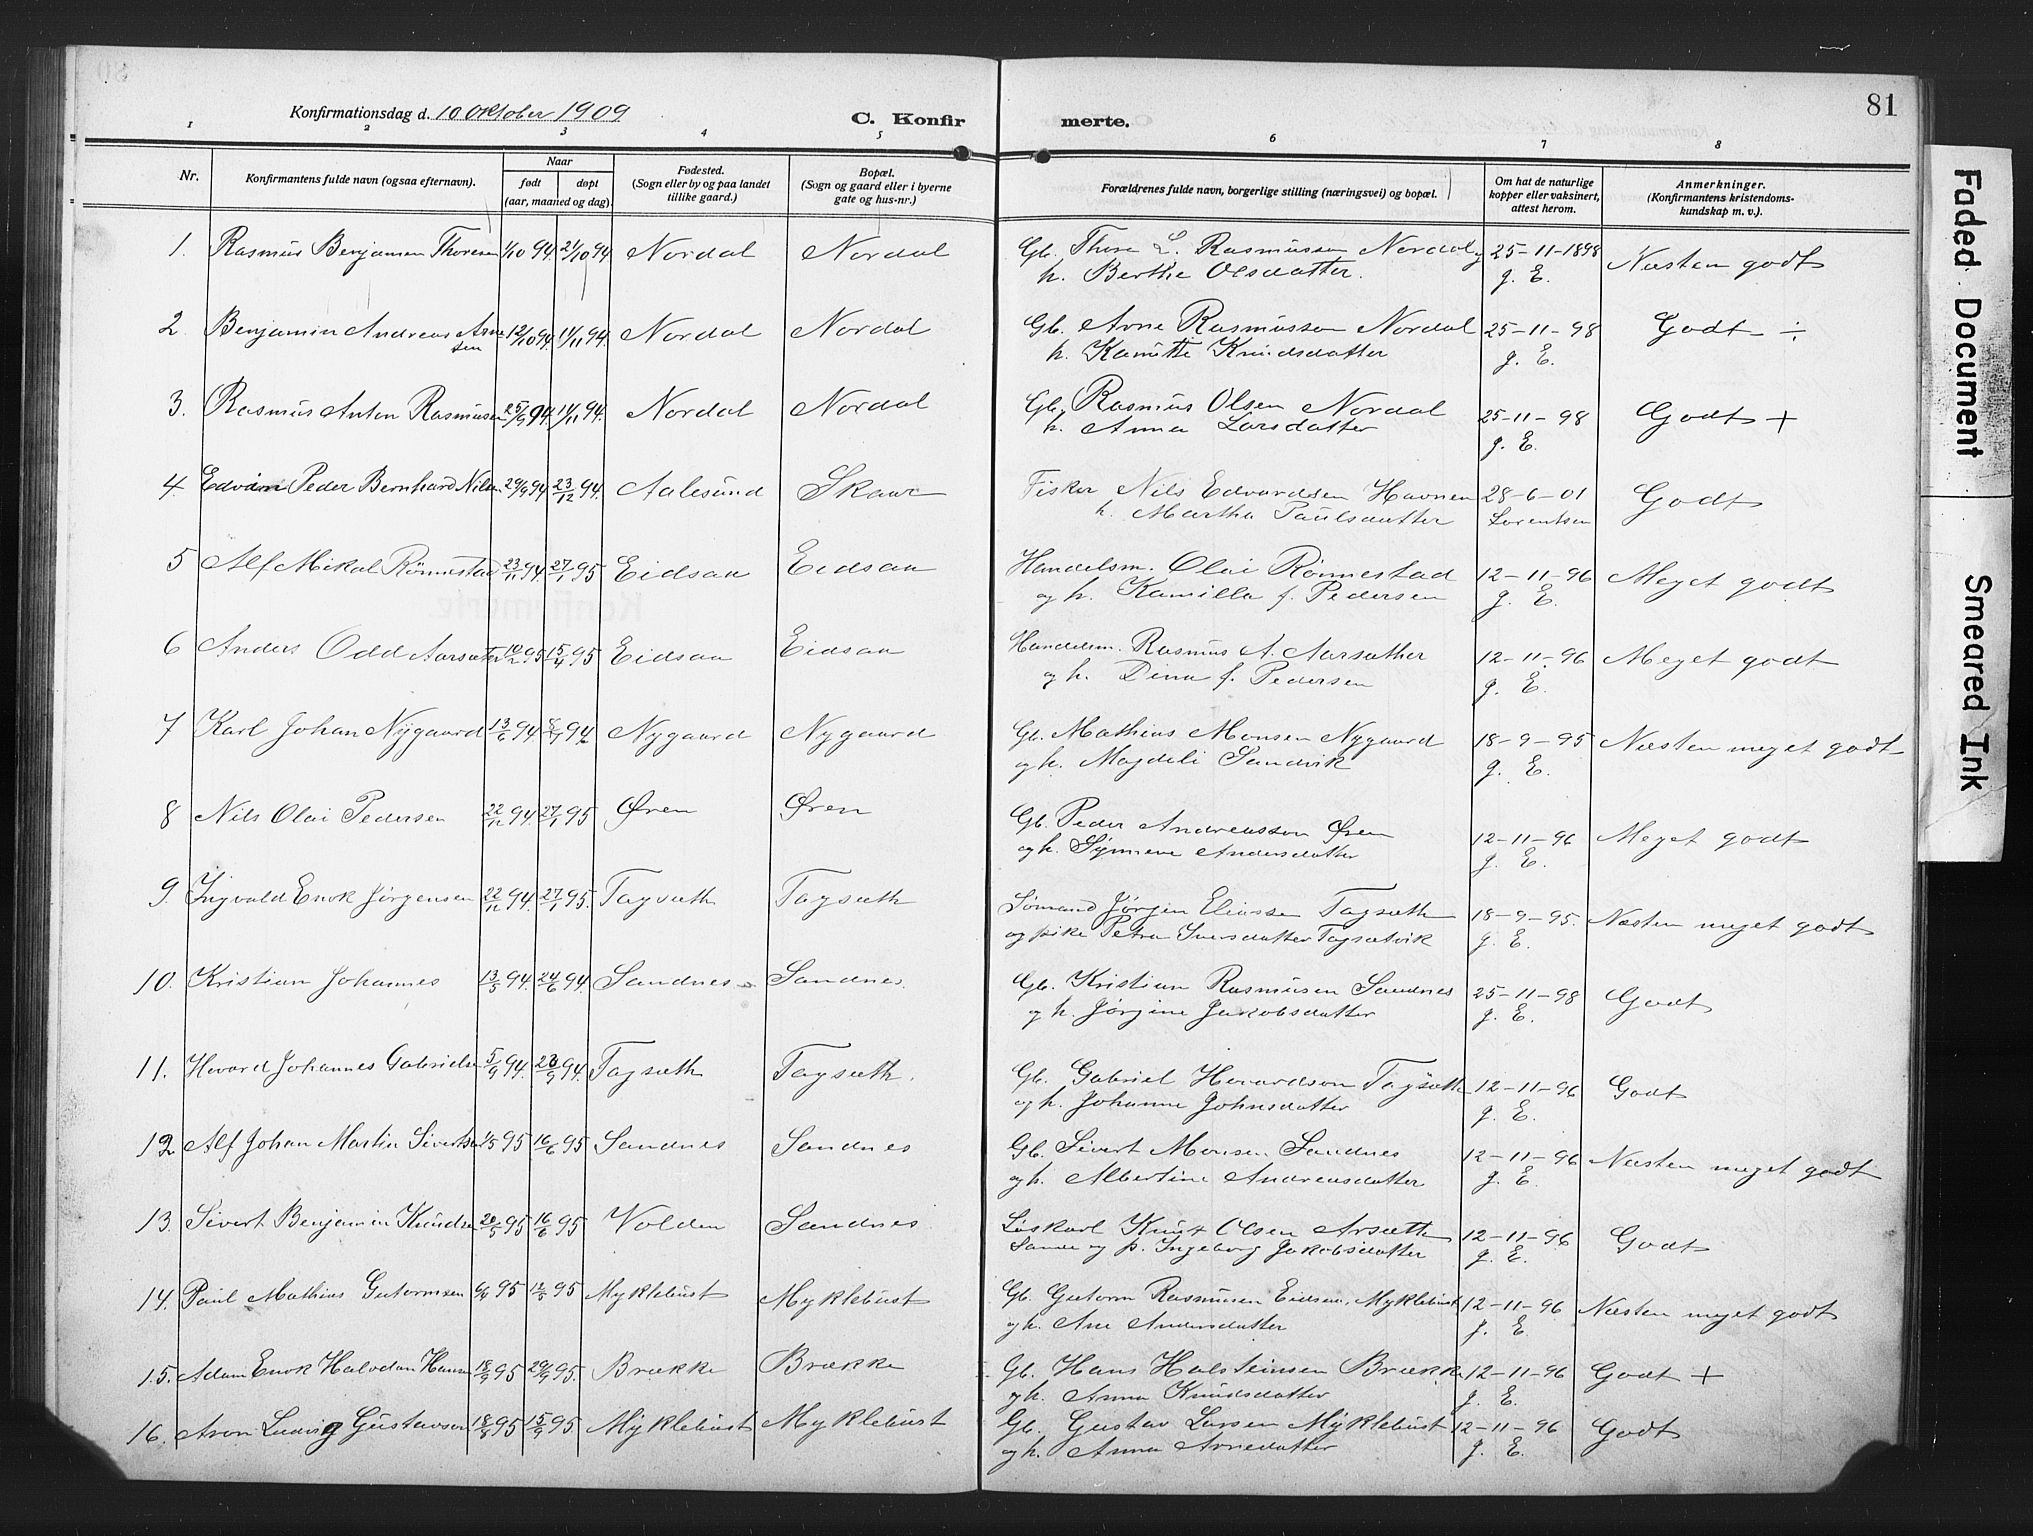 81
Konfirmationsdag d. 10 Oktober 1909
C. Konfir merte.
1 2 3 4 5 6 7 8
Nr.
Konfirmantens fulde navn (ogsaa efternavn).
Naar
født døpt
(aar, maaned og dag).
Fødested.
(Sogn eller by og paa landet
tillike gaard.)
Bopæl.
(Sogn og gaard eller i byerne
gate og hus-nr.)
Forældrenes fulde navn, borgerlige stilling (næringsvei) og bopæl.
Om hat de naturlige
kopper eller vaksinert,
attest herom.
Anmerkninger.
(Konfirmantens kristendoms-
kundskap m. v.).
1. Rasmus Benjamin Thoresen 1/10 94. 21/10 94 Nordal Nordal Gb. Thore L. Rasmussen Nordal og 25-11-1898 Næsten godt
h. Berthe Olsdatter. g. E.
2. Benjamin Andreas Arne 12/10 94. 11/11 94. Nordal Nordal Gb. Arne Rasmussen Nordal 25-11-98 Godt ÷
sen h. Kamitte Knudsdatter g. E.
3. Rasmus Anton Rasmusen 25/9 94. 11/11 94. Nordal Nordal Gb. Rasmus Olsen Nordal 25-11-98 Godt +
h. Anna Larsdatter g. E.
4. Edvin Peder Bernhard Nilsen 29/9 94 23/12 94. Aalesund Skaar Fisker Nils Edvardsen Havnen 28-6-01 Godt
h. Martha Paulsdatter Lorentsen
5 Alf Mikal Rönnestad 23/11 94. 27/1 95 Eidsaa Eidsaa Handelsm. Olai Rönnestad 12-11-96 Meget godt
og h. Kamilla f. Pedersen g. E.
6 Anders Odd Aarsæter 10/2 95 15/4 95 Eidsaa Eidsaa Handelsm. Rasmus A. Aarsæther 12-11-96 Meget godt
og h. Dina f. Pedersen g. E.
7 Karl Johan Nygaard 13/6 94. 8/7 94 Nygaard Nygaard Gb. Mathias Monsen Nygaard 18-9-95 Næsten meget godt
og h. Magdeli Sandvik g. E.
8 Nils Olai Pedersen 22/11 94. 27/1 95 Øren Øren Gb. Peder Andreasson Øren 12-11-96 Meget godt
og h. Synneve Andersdatter g. E.
9. Ingvald Enok Jørgensen 22/11 94. 27/1 95. Tagsæth Tagsæth Sömand Jørgen Eliassen Tagsæth 18-9-95. Næsten meget godt
og pike Petra Iversdatter Tagsætvik g. E.
10. Kristian Johannes 13/5 94. 24/6 94. Sandnes Sandnes. Gb. Kristian Rasmusen Sandnes 25-11-98 Godt
og h. Jørgine Jakobsdatter g. E.
11. Hovard Johannes Gabrielsen 5/9 94. 23/9 94. Tagsæth Tagsæth. Gb. Gabriel Hovardson Tagsæth 12-11-96 Godt
og h. Johanne Johnsdatter g. E.
12 Alf Johan Martin Sivertsen 1/5 95 16/6 95 Sandnes Sandnes Gb. Sivert Monsen Sandnes 12-11-96 Næsten meget godt
og h. Albertine Andreasdatter g. E.
13. Sivert Benjamin Knudsen 20/5 95 16/6 95 Volden Sandnes Löskarl Knut Olsen Arsæth 12-11-96 Godt
Sande og p. Ingeborg Jakobsdatter g. E.
14. Paul Mathias Gutormsen 95 95 Myklebust Myklebust Gb. Gutorm Rasmusen Eidsaa, Myklebust 12-11-96 Næsten meget godt
og h. Ane Andersdatter g. E.
15. Adam Enok Halvdan Hansen 95 29/9 95. Brække Brække Gb. Hans Halsteinsen Brække 12-11-96 Godt +
og h. Anna Knudsdatter g. E.
16. Aron Ludvig Gustavson 18/8 95 15/9 95. Myklebust Myklebust Gb. Gustav Larsen Myklebust 12-11-96 Godt
og h. Anna Arnedatter g. E.
Faded Document
Smeared Ink